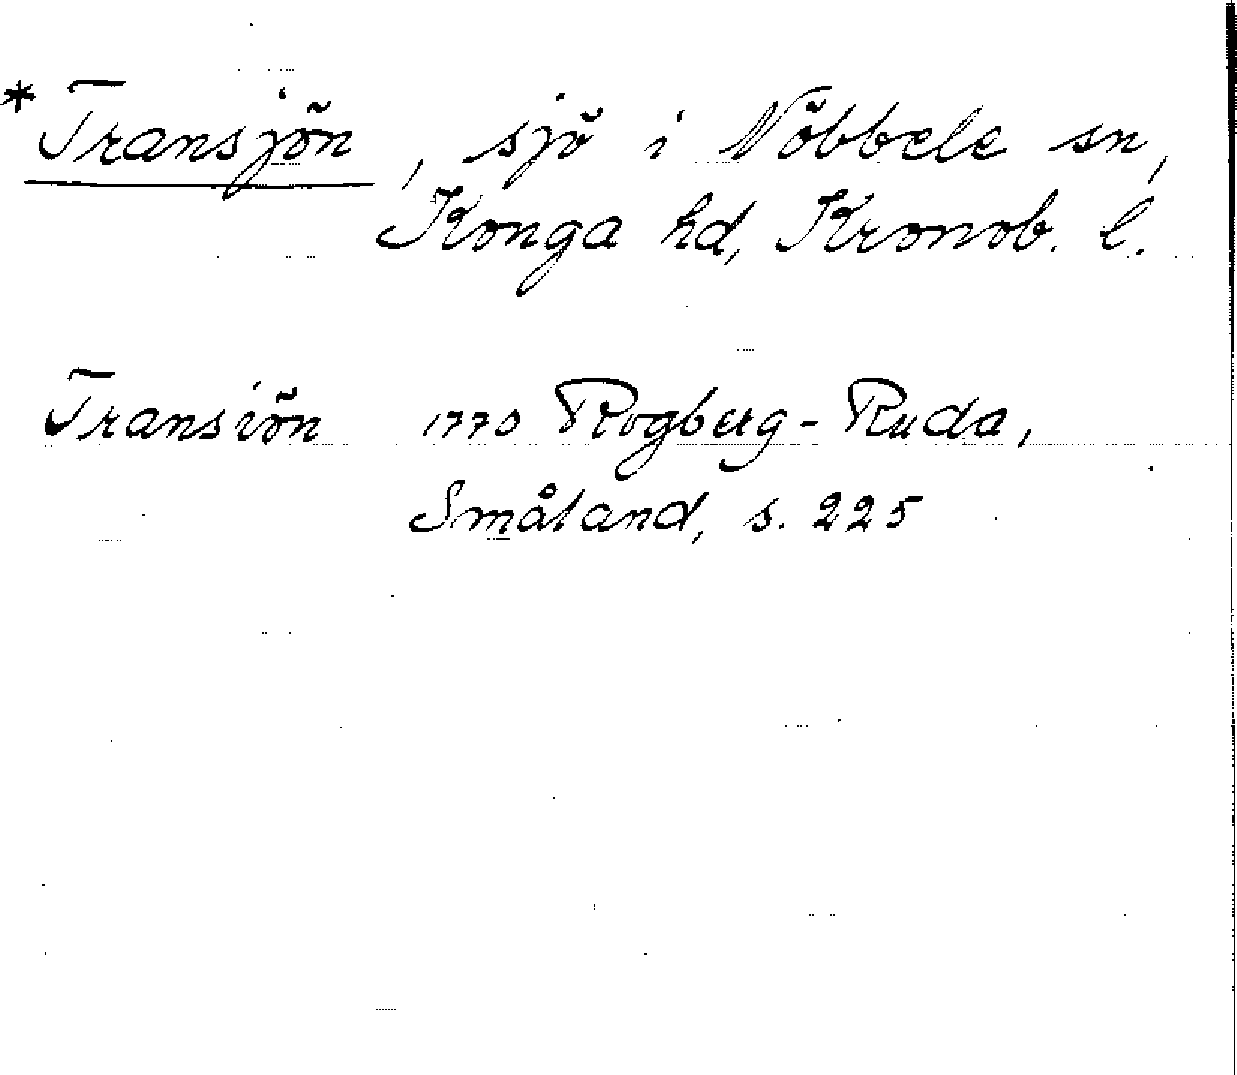 *Transjön, sjö i Nöbbele sn,
Konga hd, Kronob. l.
Transiön 1770 Rogberg-Ruda,
Småland, s. 225